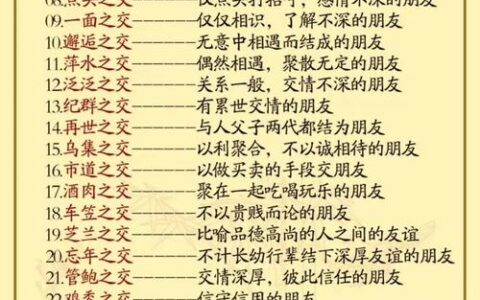 08.点头之交------仅点头打招呼，感情不深的朋友
09.一面之交------仅仅相识，了解不深的朋友
10.邂逅之交------无意中相遇而结成的朋友
11.萍水之交------偶然相遇，聚散无定的朋友
12.泛泛之交------关系一般，交情不深的朋友
13.纪群之交------有累世交情的朋友
14.再世之交------与人父子两代都结为朋友
15.乌集之交------以利聚合，不以诚相待的朋友
16.市道之交------以做买卖的手段交朋友
17.酒肉之交------聚在一起吃喝玩乐的朋友
18.车笠之交------不以贵贱而论的朋友
19.芝兰之交------比喻品德高尚的人之间的友谊
20.忘年之交------不计长幼行辈结下深厚友谊的朋友
21.管鲍之交------交情深厚，彼此信任的朋友
22.鸡黍之交------信守信用的朋友